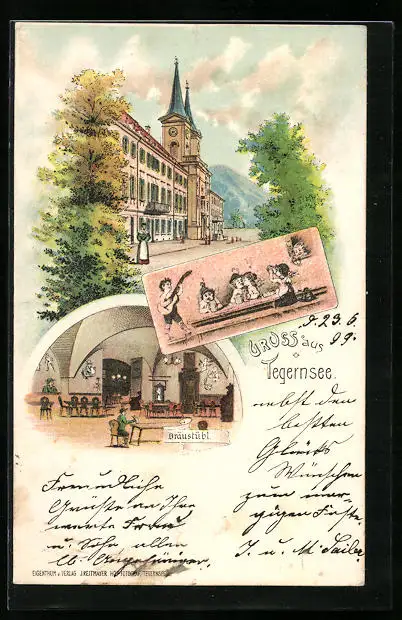 GRUSS aus
Tegernsee.
Bräustübl.
d. 23. 6.
99.
nebst den
besten
Glücks
Wünschen
zum mor-
gigen Feste.
J. u. M. Sailer
Freundliche
Grüße an Ihre
werte Frau
u. Sohn allen
EIGENTHUM u. VERLAG J. REITMAYER, HOFFOTOGRAF, TEGERNSEE.